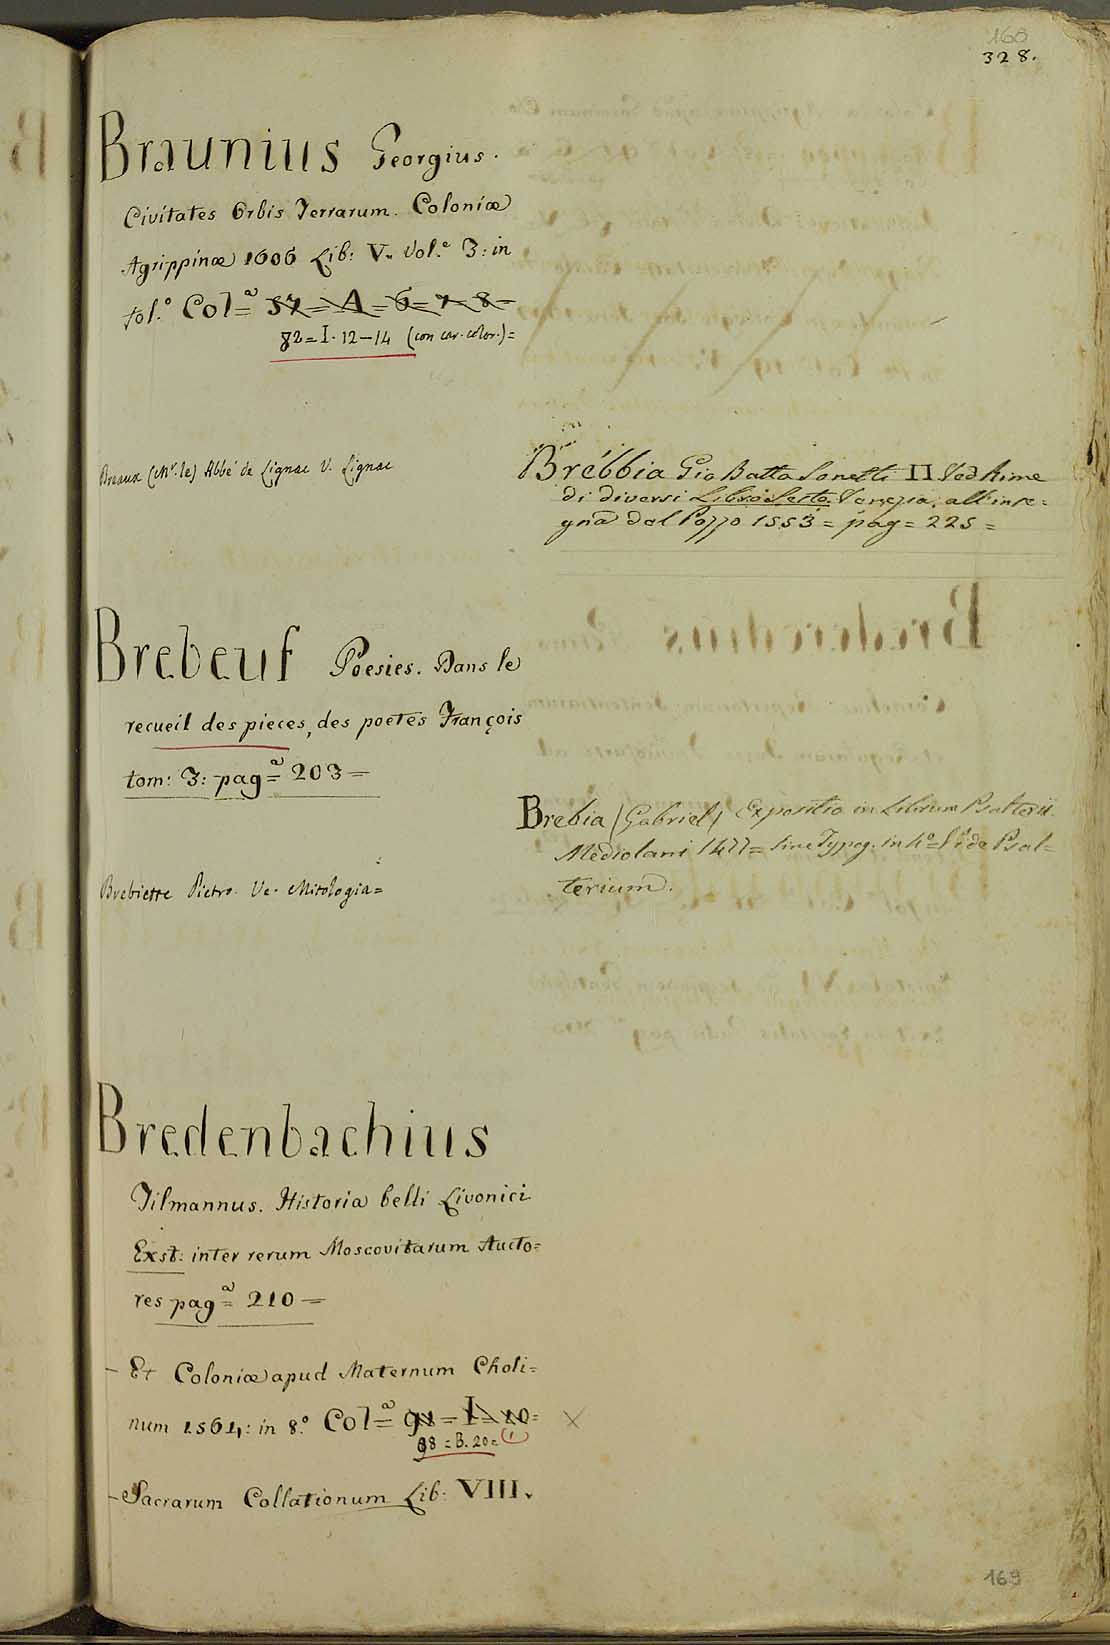 160
328.
Braunius Georgius.
Civitates Orbis Terrarum. Coloniæ
Agrippinæ 1606 Lib: V. Vol.e 3: in
fol.o Col=a 37 = A = 6 = 7 = 8 =
82 = I. 12 – 14 (con car. color.) =
Braux (Mr. le) Abbé de Lignac V. Lignac
Brebeuf Poesies. Dans le
recueil des pieces, des poetes François
tom: 3: pag=a 203 =
Brebiette Pietro. Ve. Mitologia =
Bredenbachius
Tilmannus. Historia belli Livonici
Exst: inter rerum Moscovitarum Aucto=
res pag=a 210 =
– Et Coloniæ apud Maternum Choli=
num 1564: in 8.o Col=a 91 = I = 10 = X
98 = B. 20 = (1)
– Sacrarum Collationum Lib: VIII.
Brebbia Gio Batta Sonetti II Ved Rime
di diversi Libro Sesto. Venezia. all'inse=
gna dal Pozzo 1553 = pag = 225 =
Brebia (Gabriel) Expositio in Librum Psalterii.
Mediolani 1477 = sine Typog. in 4.o = Vide Psal=
terium.
169